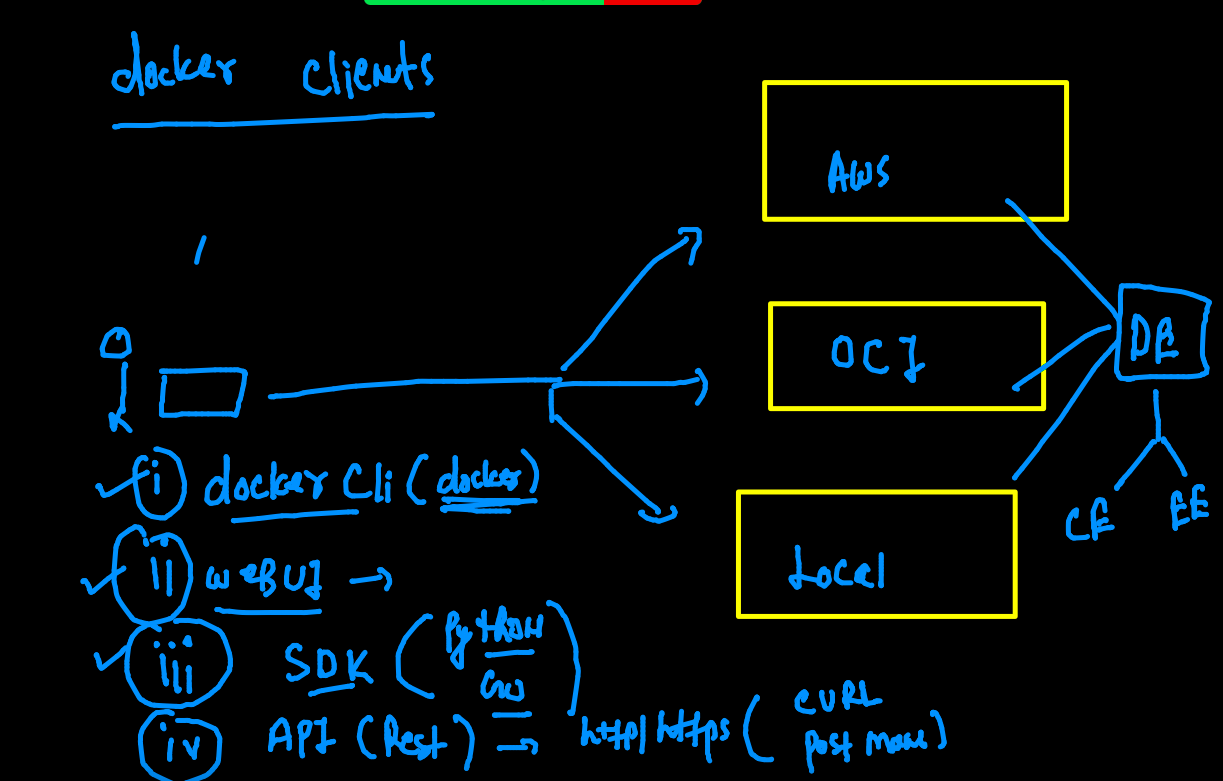 docker clients
AWS
OCI
DE
CE EE
Local
i docker cli (docker)
ii webUI →
iii SDK (Python
Go)
iv API (Rest) → http/https (CURL
postman)